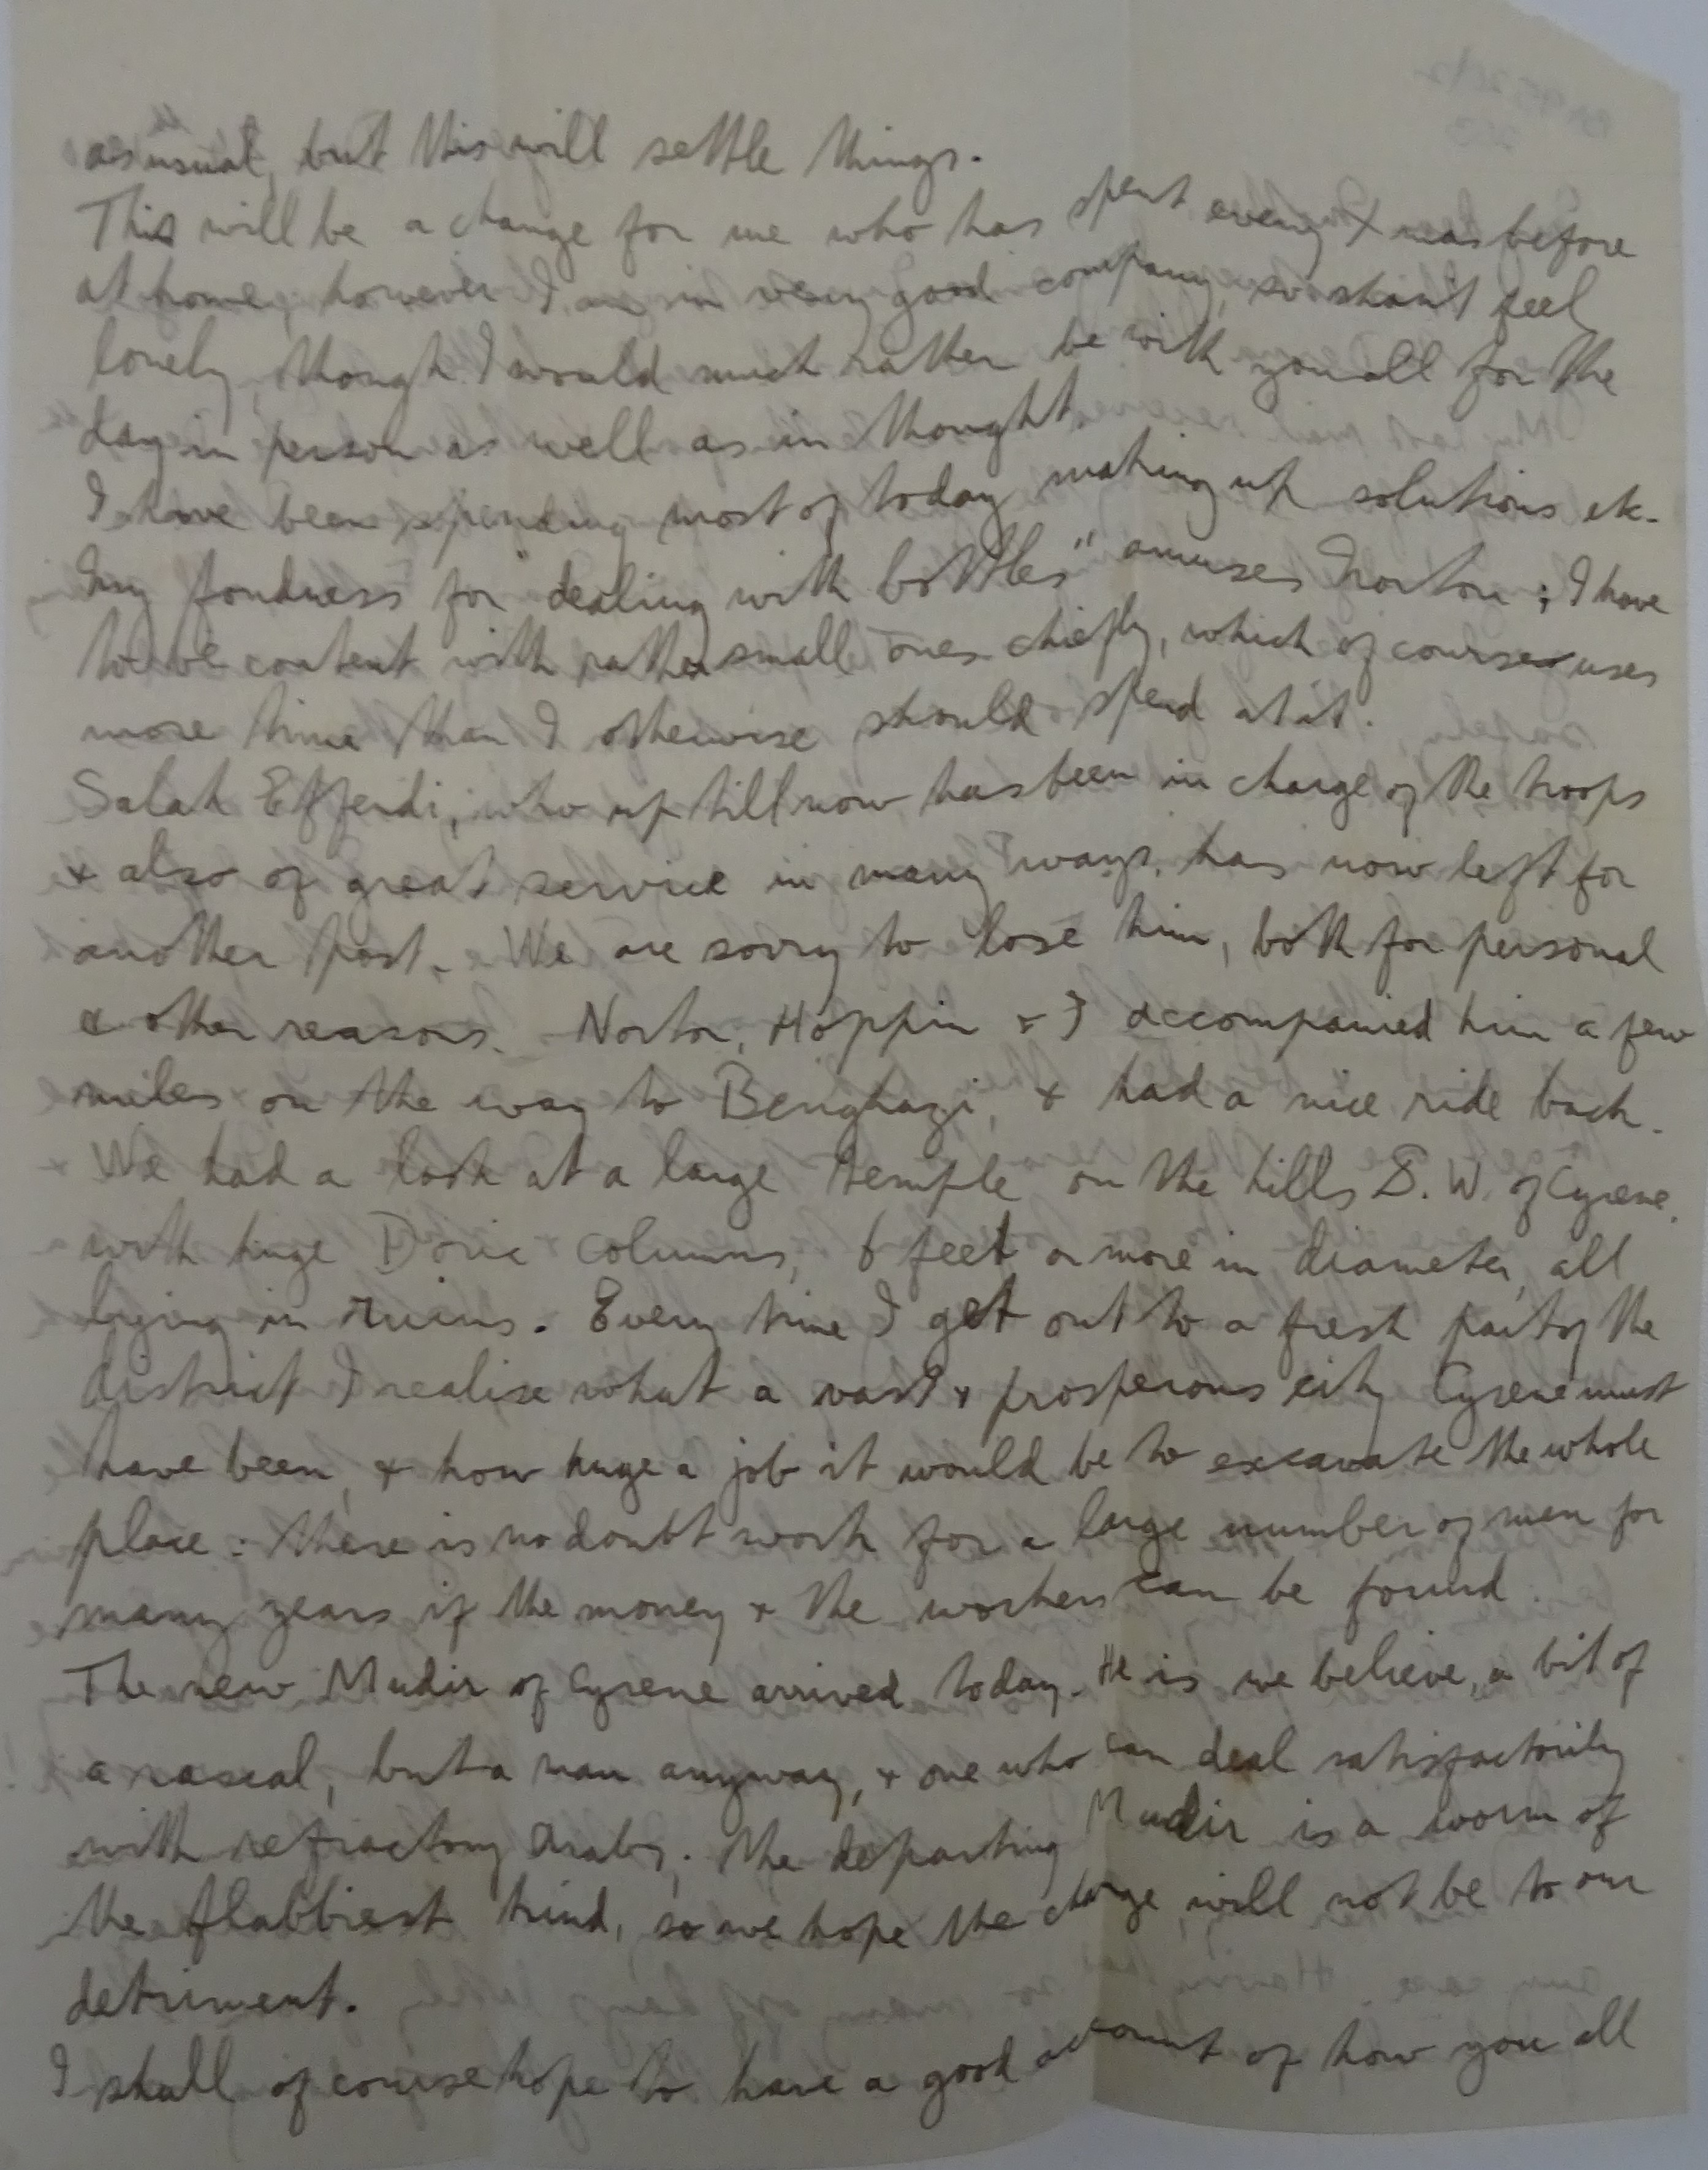 as usual", but this will settle things.
This will be a change for me who has spent every Xmas before
at home; however I am in very good company, so shan't feel
lonely, though I would much rather be with you all for the
day in person as well as in thought.
I have been spending most of today making up solutions etc.
My fondness for "dealing with bottles" amuses Norton; I have
to be content with rather small ones chiefly, which of course uses
more time than I otherwise should spend at it.
Salah Effendi, who up till now has been in charge of the troops
& also of great service in many ways, has now left for
another post. We are sorry to lose him, both for personal
& other reasons. Norton, Hoppin & I accompanied him a few
miles on the way to Benghazi, & had a nice ride back.
We had a look at a large temple on the hills S. W. of Cyrene,
with huge Doric columns, 6 feet or more in diameter, all
lying in ruins. Every time I get out to a fresh part of the
district I realise what a vast & prosperous city Cyrene must
have been, & how huge a job it would be to excavate the whole
place: there is no doubt work for a large number of men for
many years if the money & the workers can be found.
The new Mudir of Cyrene arrived today. He is we believe, a bit of
a rascal, but a man anyway, & one who can deal satisfactorily
with refractory Arabs. The departing Mudir is a worm of
the flabbiest kind, so we hope the change will not be to our
detriment.
I shall of course hope to have a good account of how you all